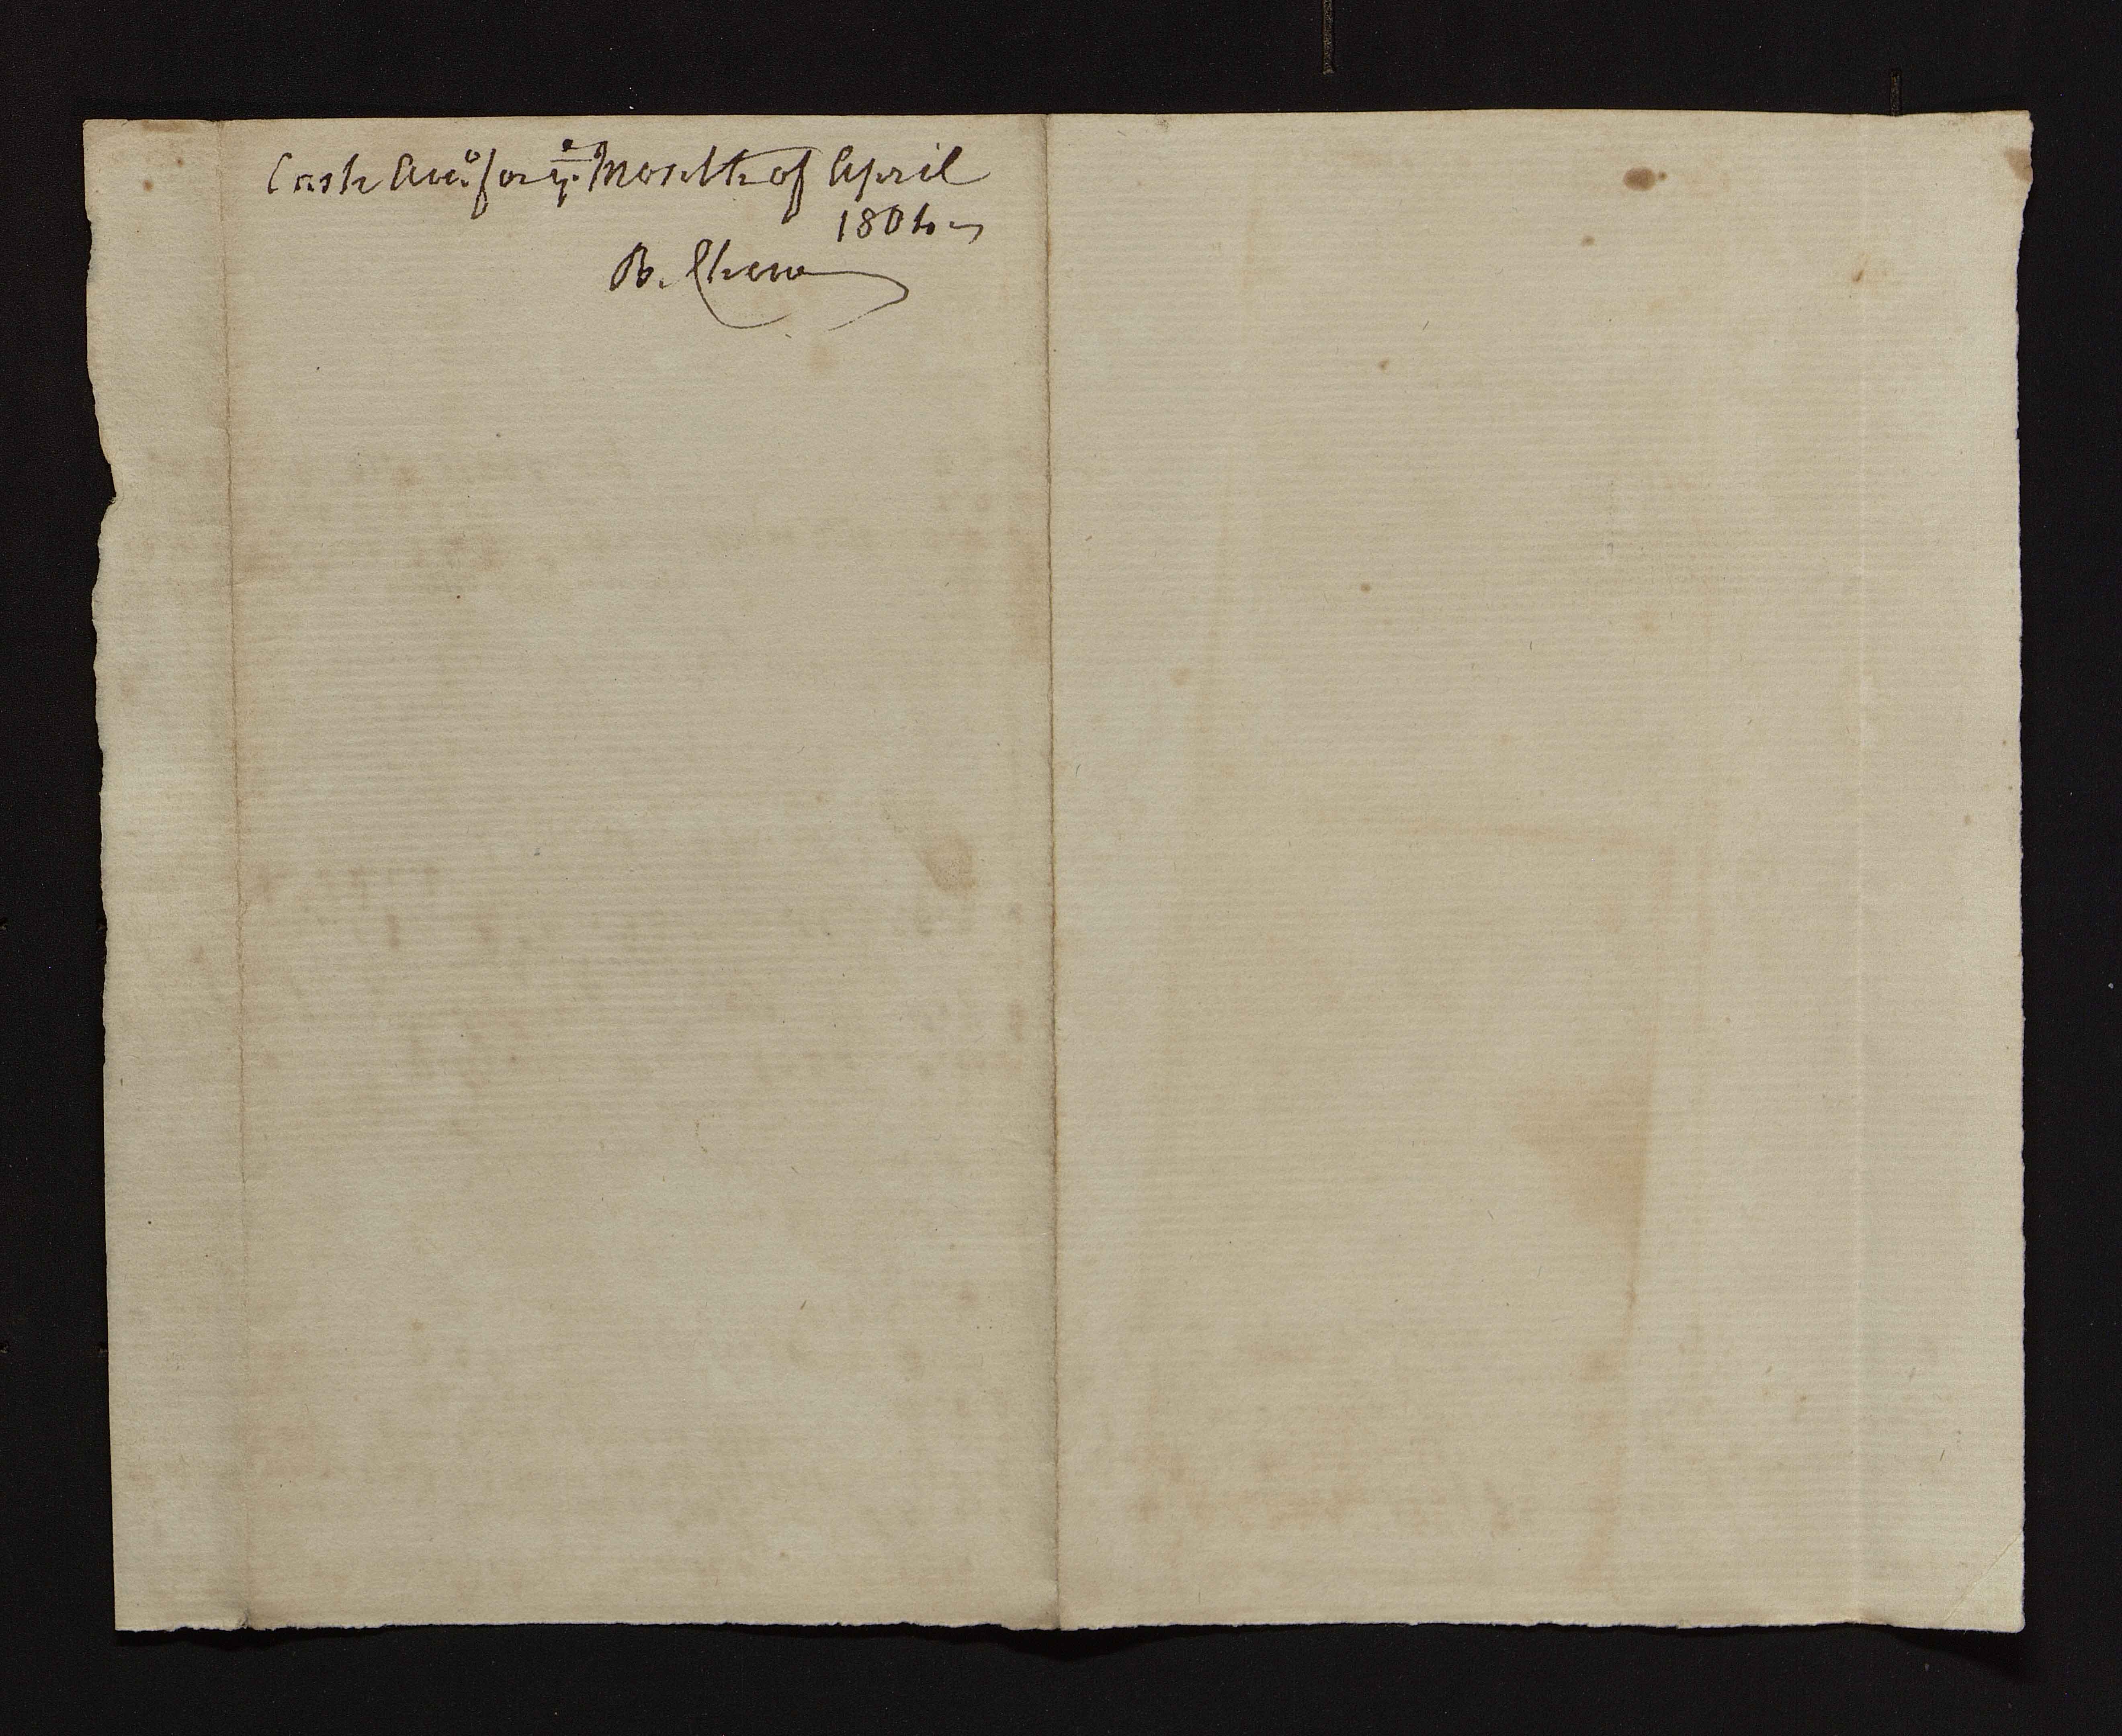 Cash Acc.º for y.e Month of April
1804
B. Chew